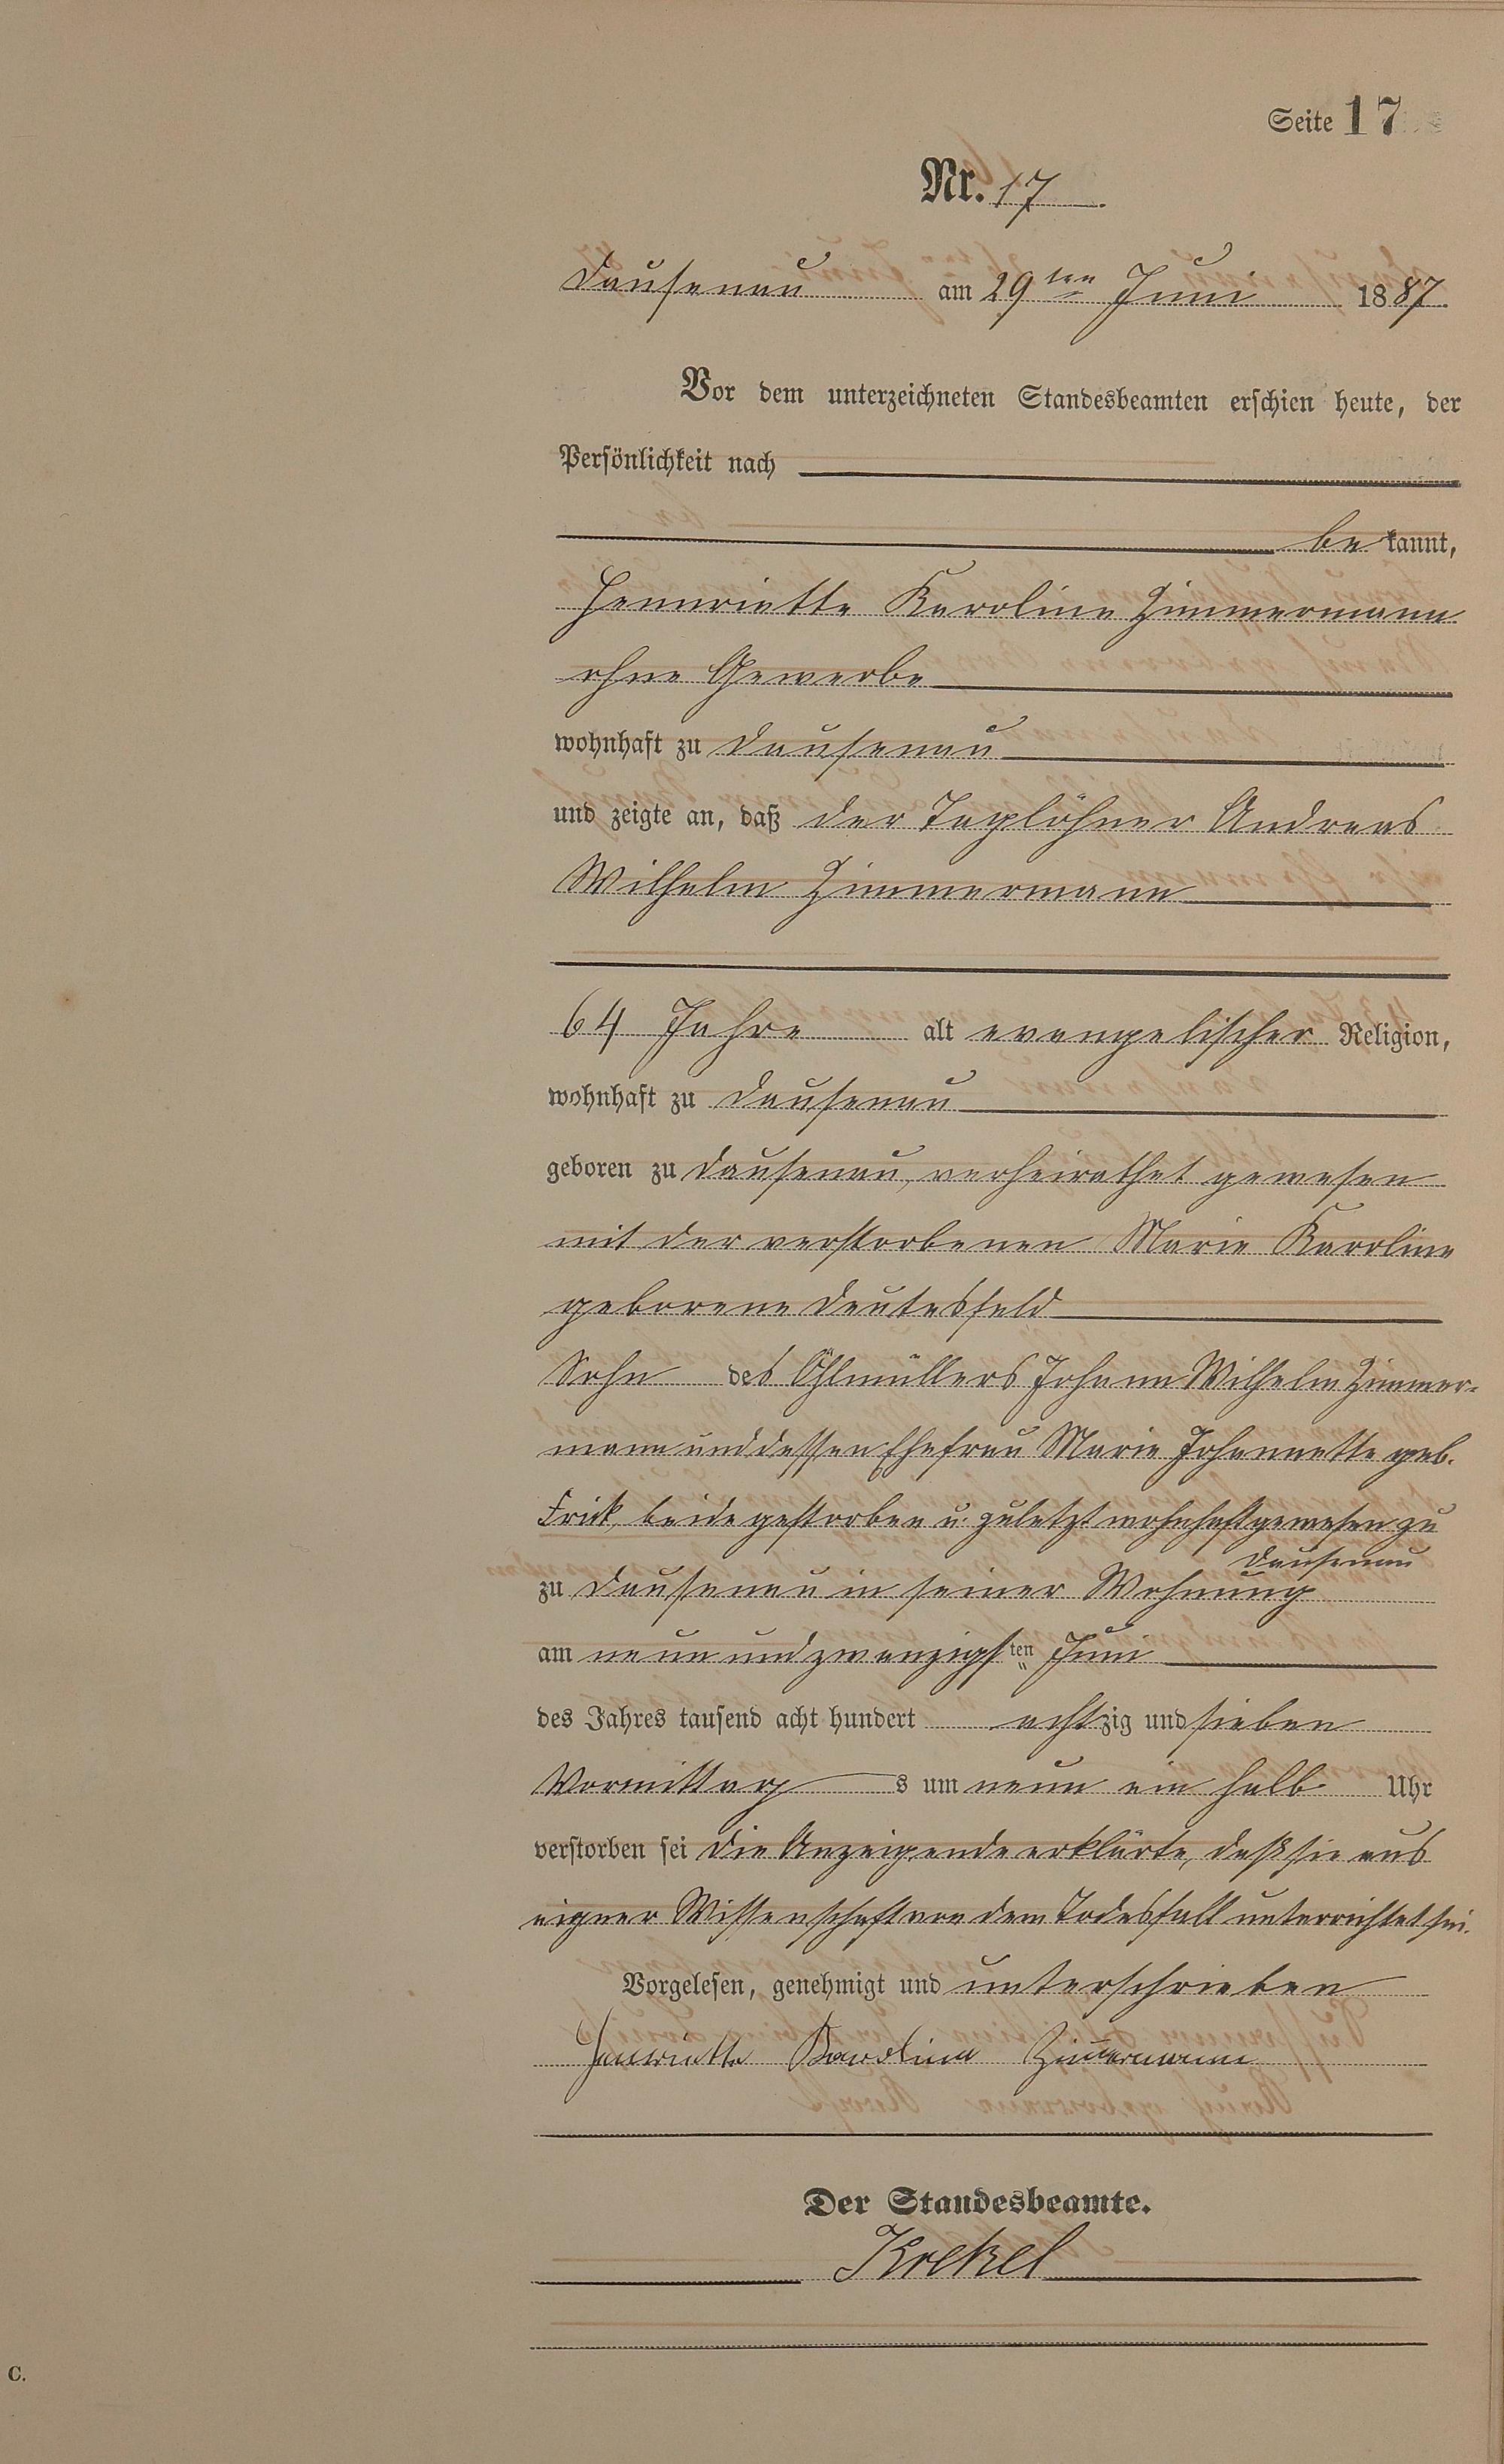 Seite 17
Nr. 17
Dausenau am 29ten Juni 1887.
Vor dem unterzeichneten Standesbeamten erschien heute, der
Persönlichkeit nach
be kannt,
Henriette Karoline Zimmermann
ohne Gewerbe
wohnhaft zu Dausenau
und zeigte an, daß der Taglöhner Andreas
Wilhelm Zimmermann
64 Jahre alt evangelischer Religion,
wohnhaft zu Dausenau
geboren zu Dausenau, verheirathet gewesen
mit der verstorbenen Marie Karoline
geborene Deutesfeld
Sohn des Öhlmüllers Johann Wilhelm Zimmer-
mann und dessen Ehefrau Marie Johannette geb.
Frick, beide gestorben u. zuletzt wohnhaft gewesen zu
Dausenau
zu Dausenau in seiner Wohnung
am neun und zwanzigsten Juni
des Jahres tausend acht hundert achtzig und sieben
Vormittag s um neun ein halb Uhr
verstorben sei die Anzeigende erklärte, daß sie aus
eigner Wissenschaft von dem Todesfall unterrichtet sei.
Vorgelesen, genehmigt und unterschrieben
Henriette Karolina Zimmermann
Der Standesbeamte.
Krekel
C.